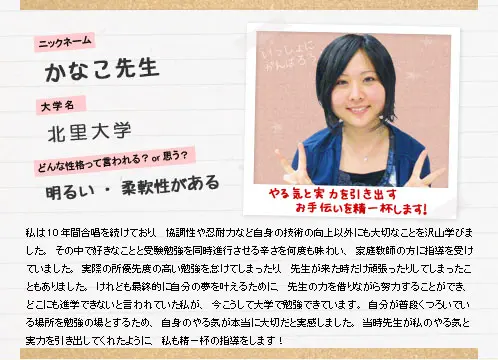 ニックネーム
かなこ先生
大学名
北里大学
どんな性格って言われる？ or 思う？
明るい ・ 柔軟性がある
いっしょに
がんばろう
やる気と実力を引き出す
お手伝いを精一杯します!
私は10年間合唱を続けており、協調性や忍耐力など自身の技術の向上以外にも大切なことを沢山学びま
した。その中で好きなことと受験勉強を同時進行させる辛さを何度も味わい、家庭教師の方に指導を受け
ていました。実際の所優先度の高い勉強を怠けてしまったり、先生が来た時だけ頑張ったりしてしまったこ
ともありました。けれども最終的に自分の夢を叶えるために、先生の力を借りながら努力することができ、
どこにも進学できないと言われていた私が、今こうして大学で勉強できています。自分が普段くつろいでい
る場所を勉強の場とするため、自身のやる気が本当に大切だと実感しました。当時先生が私のやる気と
実力を引き出してくれたように、私も精一杯の指導をします！